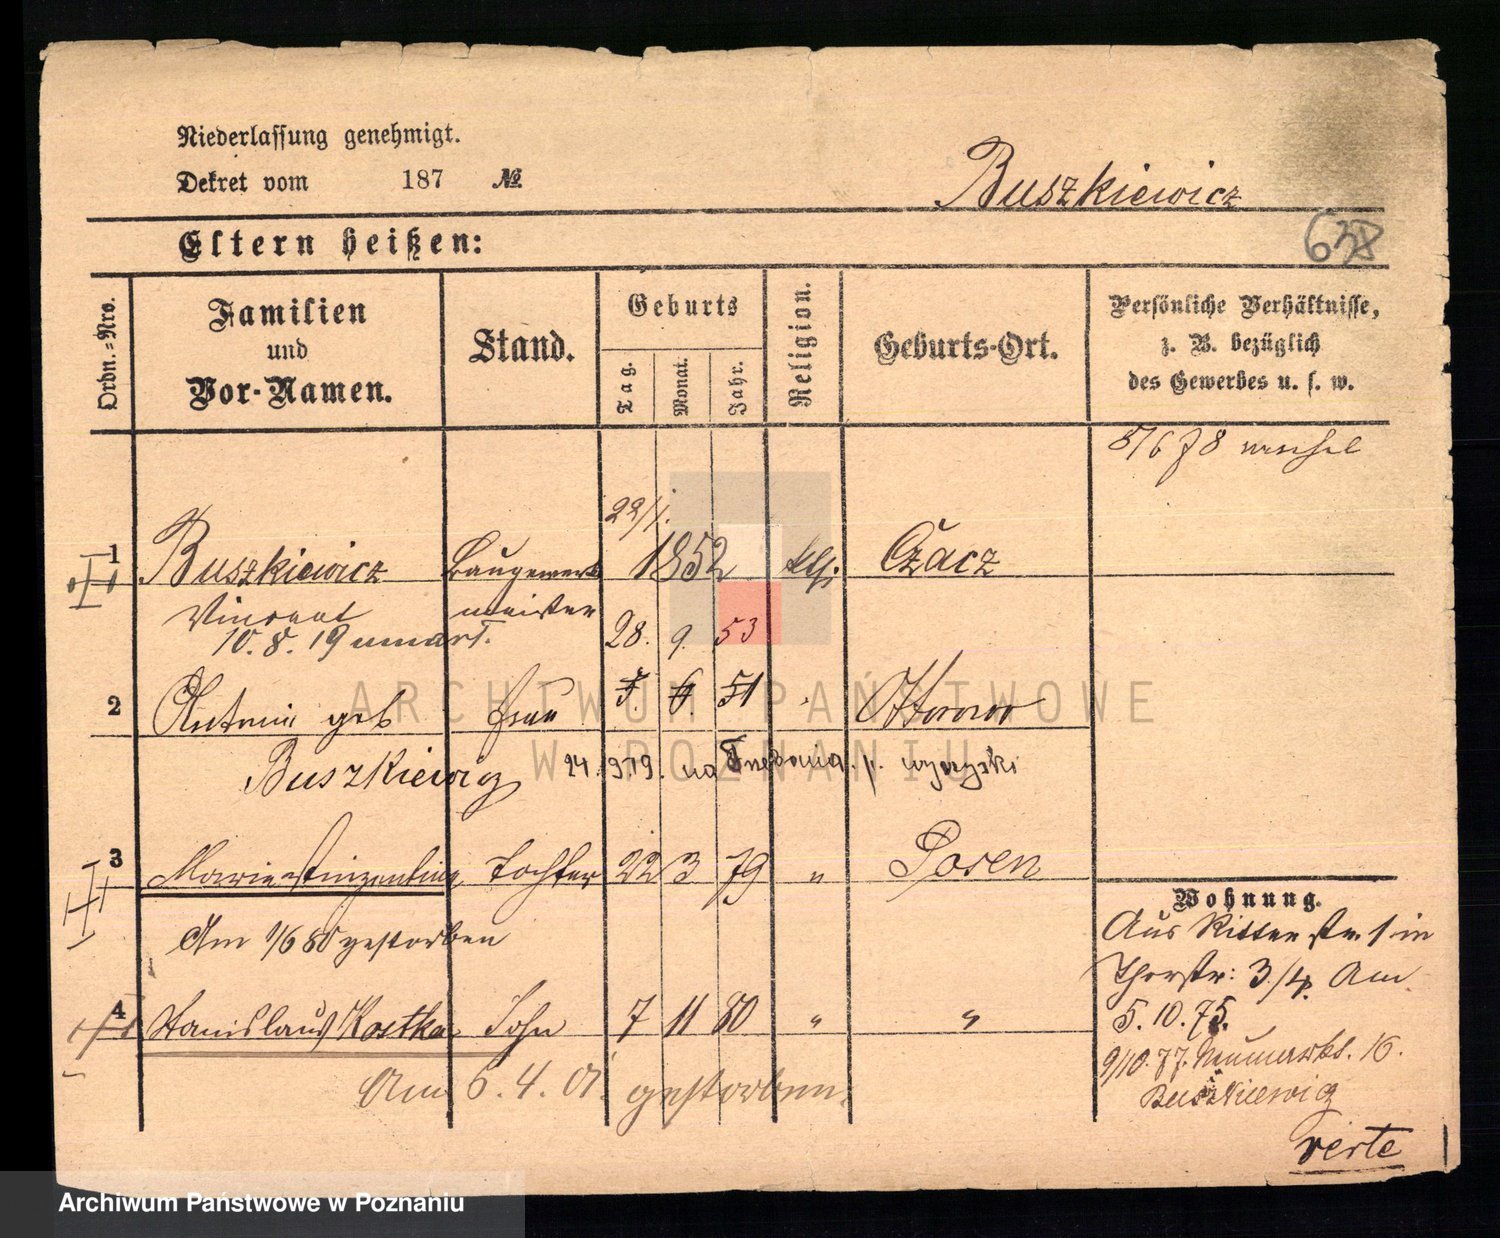 Niederlassung genehmigt.
Dekret vom 187 №
Buszkiewicz
Eltern heißen:
638
Ordn.-Nro.
Familien und Vor-Namen.
Stand.
Geburts
Tag.
Monat.
Jahr.
Religion.
Geburts-Ort.
Persönliche Verhältnisse,
z. B. bezüglich
des Gewerbes u. s. w.
22/1.
1 Buszkiewicz Baugewerk 1852 kth. Czacz
Vincent meister
10.8.19 umart. 28. 9. 53
2 Antonie geb Frau 7. 6. 51 Ottorowo
Buszkiewicz 24.9.19. na
3 Marie Vinzentine Tochter 22 3 79 " Posen
Am 1/6 80 gestorben
4 Stanislaus Kostka Sohn 7 11 80 " "
Am 6.4.01. gestorben.
Wohnung.
Aus Ritterstr. 1 in
Thorstr: 3/4. Am
5.10.75.
9/10.77. Neumarkt. 16.
Buszkiewicz
verte
ARCHIWUM PAŃSTWOWE
W POZNANIU
Archiwum Państwowe w Poznaniu